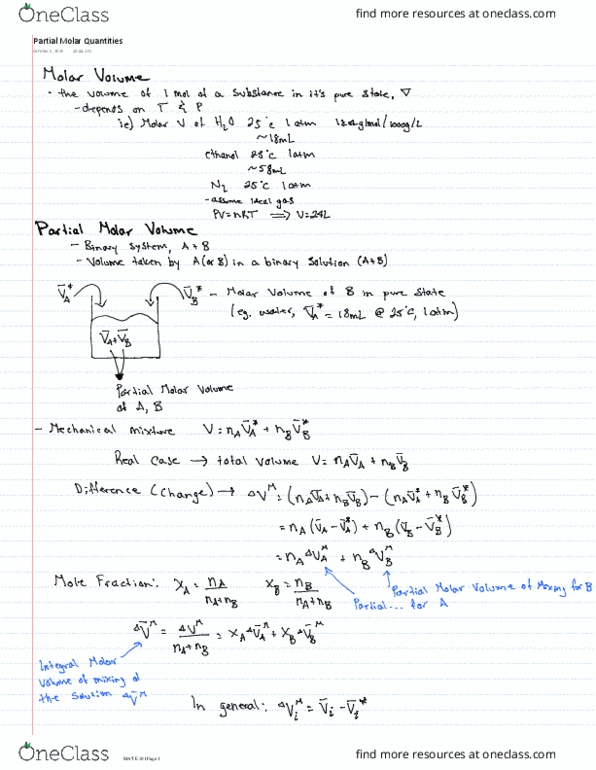 OneClass
find more resources at oneclass.com
Partial Molar Quantities
Molar Volume
• the volume of 1 mol of a substance in it's pure state, V̄
- depends on T & P
ie) Molar V of H₂O 25°C 1 atm
~18mL
ethanol 25°C 1atm
~58mL
N₂ 25°C 1atm
- assume ideal gas
PV=nRT ⟹ V=24L
Partial Molar Volume
- Binary system, A+B
- Volume taken by A(or B) in a binary solution (A+B)
V̄A* V̄B* - Molar Volume of B in pure state
(eg. water, V̄A* = 18mL @ 25°C, 1atm)
V̄A+V̄B
Partial Molar Volume
of A, B
- Mechanical mixture V= nAV̄A* + nBV̄B*
Real Case → total volume V= nAV̄A + nBV̄B
Difference (Change) → ΔVᴹ=(nAV̄A+nBV̄B)-(nAV̄A*+nBV̄B*)
=nA(V̄A-V̄A*)+nB(V̄B-V̄B*)
=nAΔV̄Aᴹ + nBΔV̄Bᴹ
Mole Fraction: XA = nA/(nA+nB) XB = nB/(nA+nB)
Partial Molar Volume of Mixing for B
Partial... for A
ΔV̄ᴹ = ΔVᴹ/(nA+nB) = XAΔV̄Aᴹ + XBΔV̄Bᴹ
Integral Molar
Volume of mixing of
the solution ΔV̄ᴹ
In general: ΔV̄iᴹ = V̄i - V̄i*
OneClass
find more resources at oneclass.com